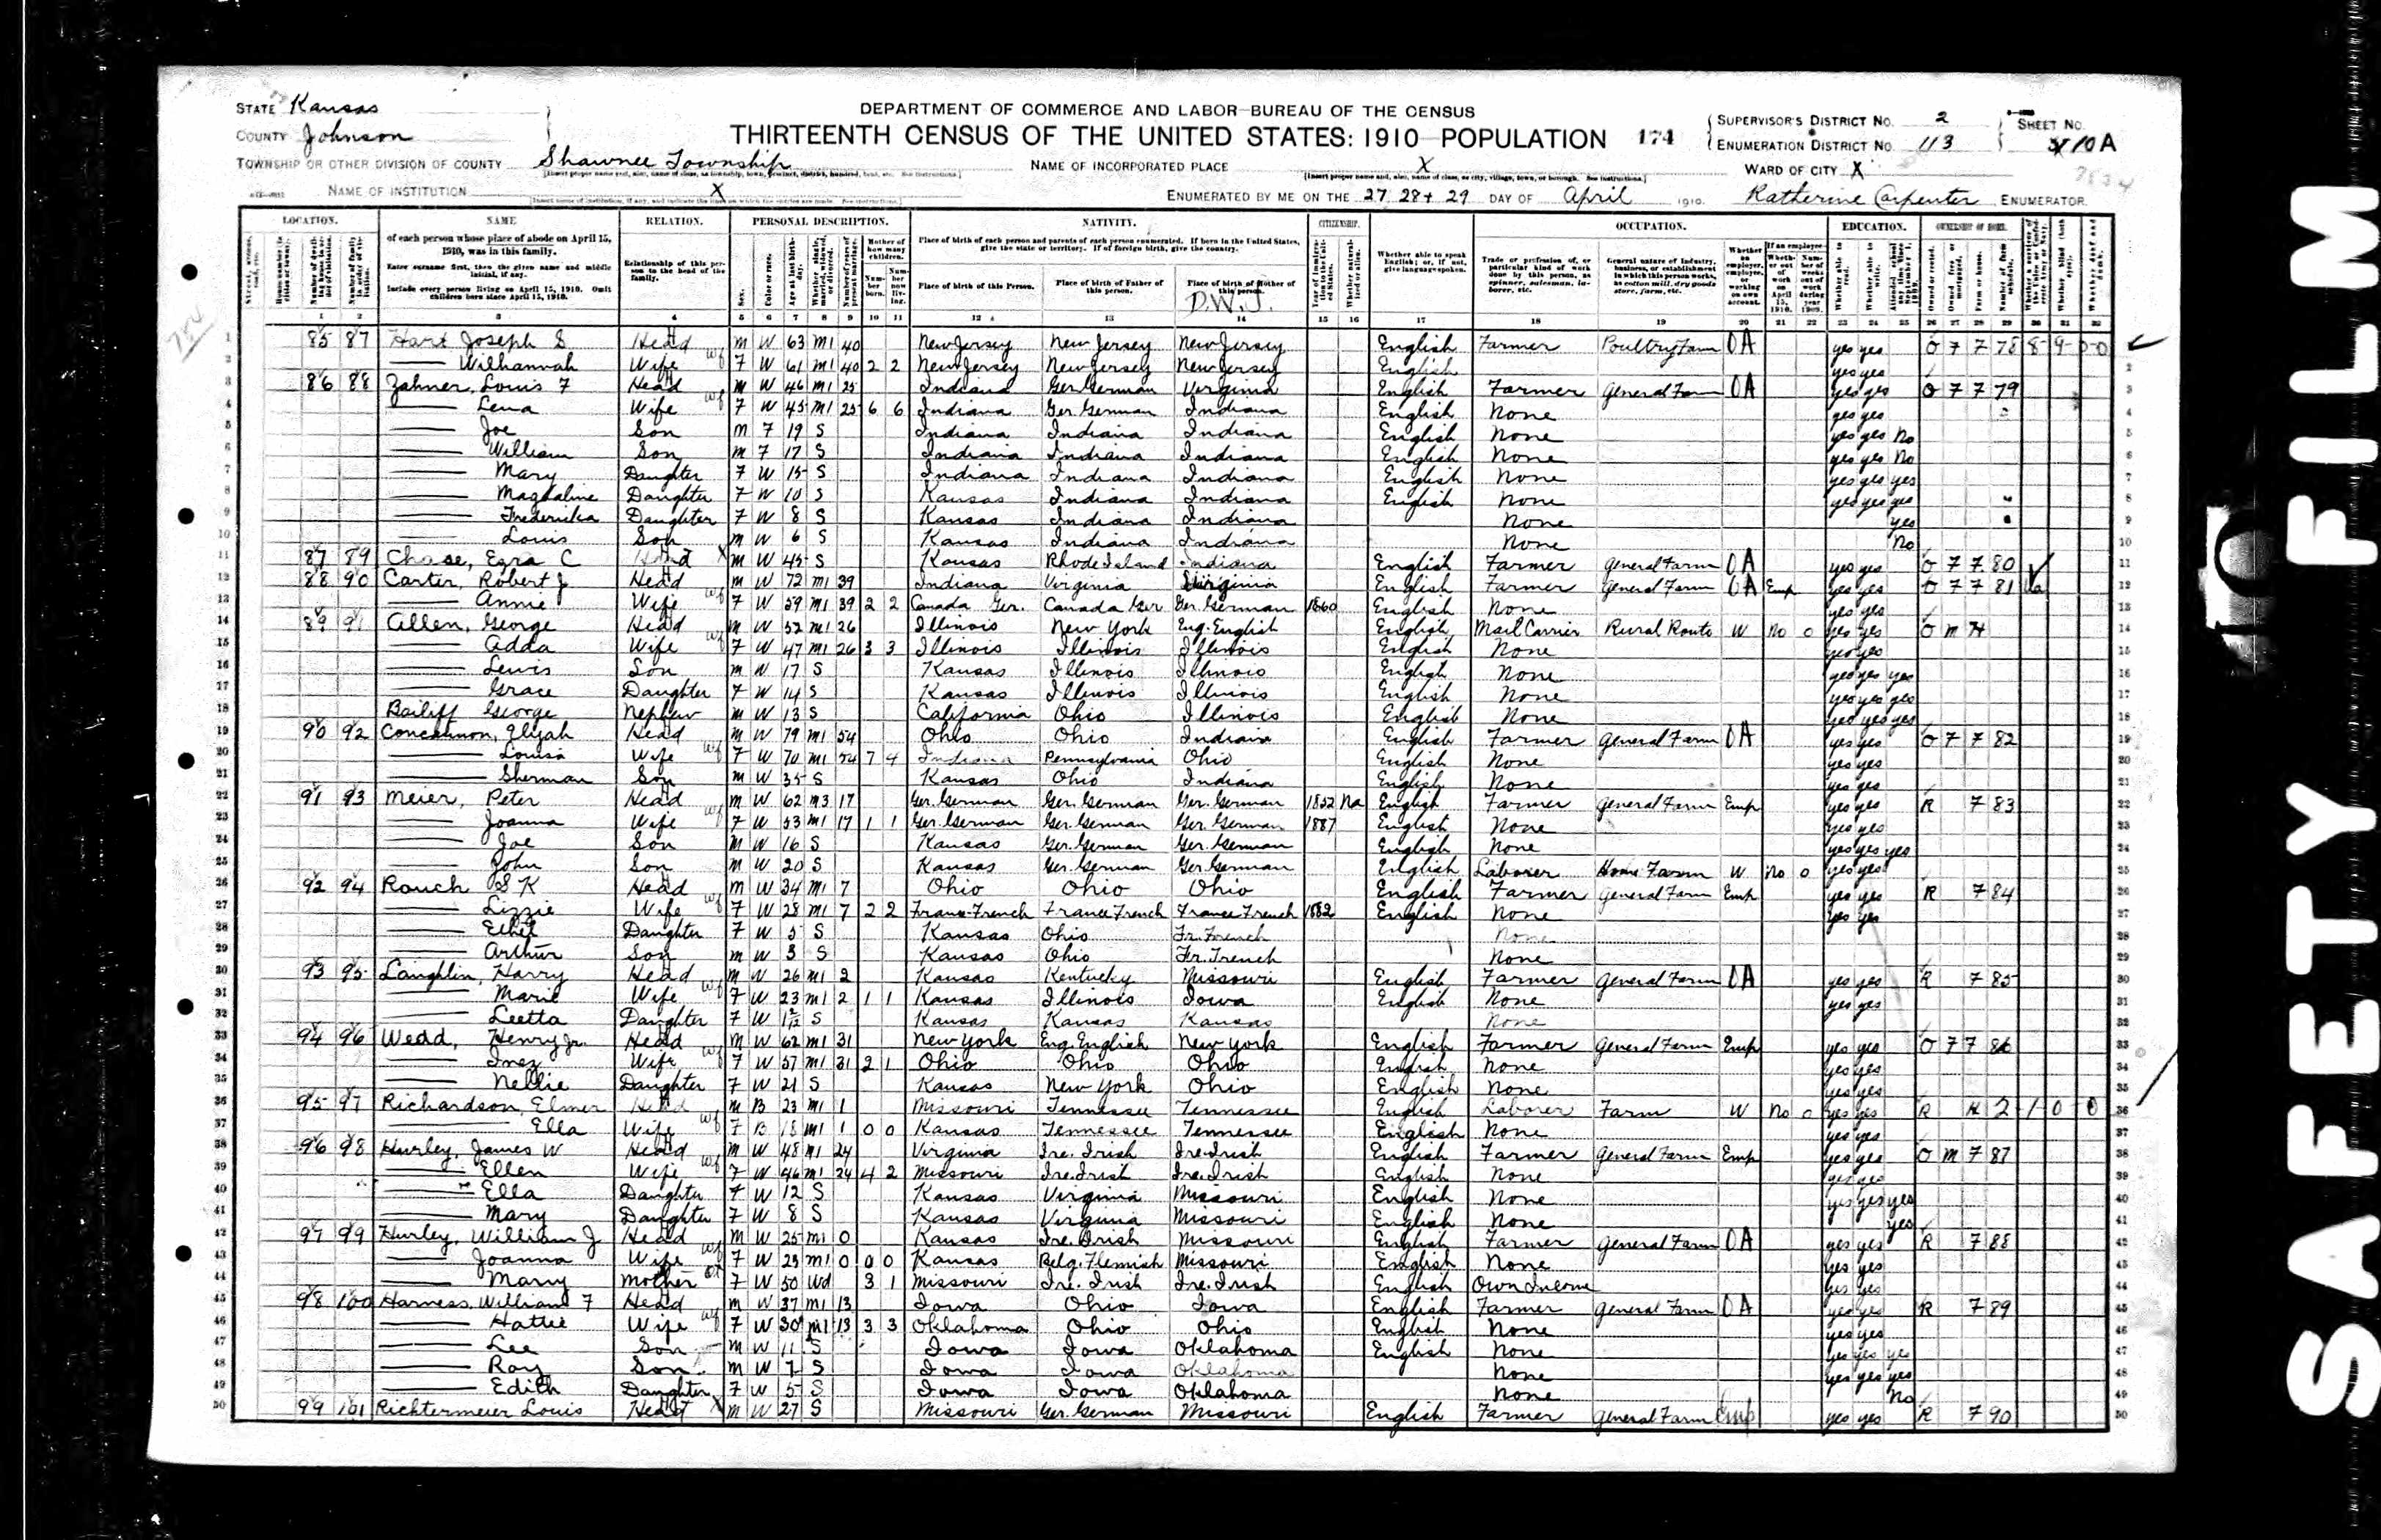 STATE Kansas
COUNTY Johnson
TOWNSHIP OR OTHER DIVISION OF COUNTY Shawnee Township
NAME OF INSTITUTION X
DEPARTMENT OF COMMERCE AND LABOR—BUREAU OF THE CENSUS
THIRTEENTH CENSUS OF THE UNITED STATES: 1910—POPULATION 174
NAME OF INCORPORATED PLACE X
ENUMERATED BY ME ON THE 27 28 + 29 DAY OF April 1910. Katherine Carpenter ENUMERATOR.
SUPERVISOR'S DISTRICT NO. 2
ENUMERATION DISTRICT NO. 113
SHEET NO. 10 A
WARD OF CITY X
LOCATION. NAME RELATION. PERSONAL DESCRIPTION. NATIVITY. CITIZENSHIP. OCCUPATION. EDUCATION. OWNERSHIP OF HOME.
of each person whose place of abode on April 15, 1910, was in this family.
Enter surname first, then the given name and middle initial, if any.
Include every person living on April 15, 1910. Omit children born since April 15, 1910.
Relationship of this person to the head of the family.
Place of birth of each person and parents of each person enumerated. If born in the United States, give the state or territory. If of foreign birth, give the country.
Place of birth of this Person. Place of birth of Father of this person. Place of birth of Mother of this person.
D.W.J.
Whether able to speak English; or, if not, give language spoken.
1 2 3 4 5 6 7 8 9 10 11 12 13 14 15 16 17 18 19 20 21 22 23 24 25 26 27 28 29 30 31 32
1 85 87 Hart Joseph S Head m W 63 m1 40 New Jersey New Jersey New Jersey English Farmer Poultry Farm OA yes yes O F F 78 8 9 0 0
2 —— Wilhannah Wife F W 61 m1 40 2 2 New Jersey New Jersey New Jersey English yes yes
3 86 88 Zahner, Louis F Head m W 46 m1 25 Indiana Ger. German Virginia English Farmer General Farm OA yes yes O F F 79
4 —— Lena Wife F W 45 m1 25 6 6 Indiana Ger. German Indiana English None yes yes
5 —— Joe Son m F 19 S Indiana Indiana Indiana English None yes yes No
6 —— William Son m F 17 S Indiana Indiana Indiana English None yes yes No
7 —— Mary Daughter F W 15 S Indiana Indiana Indiana English None yes yes yes
8 —— Magdaline Daughter F W 10 S Kansas Indiana Indiana English None yes yes yes
9 —— Fredericka Daughter F W 8 S Kansas Indiana Indiana None yes
10 —— Louis Son m W 6 S Kansas Indiana Indiana None No
11 87 89 Chase, Ezra C Head m W 45 S Kansas Rhode Island Indiana English Farmer General Farm OA yes yes O F F 80
12 88 90 Carter, Robert J Head m W 72 m1 39 Indiana Virginia Virginia English Farmer General Farm OA Emp yes yes O F F 81 Ua
13 —— Annie Wife F W 59 m1 39 2 2 Canada Ger. Canada Ger Ger. German 1860 English None yes yes
14 89 91 Allen, George Head m W 52 m1 26 Illinois New York Eng. English English Mail Carrier Rural Route W No 0 yes yes O m H
15 —— Adda Wife F W 47 m1 26 3 3 Illinois Illinois Illinois English None yes yes
16 —— Lewis Son m W 17 S Kansas Illinois Illinois English None yes yes yes
17 —— Grace Daughter F W 14 S Kansas Illinois Illinois English None yes yes yes
18 Bailiff George Nephew m W 13 S California Ohio Illinois English None yes yes yes
19 90 92 Concannon, Elijah Head m W 79 m1 54 Ohio Ohio Indiana English Farmer General Farm OA yes yes O F F 82
20 —— Louisa Wife F W 70 m1 54 7 4 Indiana Pennsylvania Ohio English None yes yes
21 —— Sherman Son m W 35 S Kansas Ohio Indiana English None yes yes
22 91 93 Meier, Peter Head m W 62 m3 17 Ger. German Ger. German Ger. German 1852 Na English Farmer General Farm Emp yes yes R F 83
23 —— Joanna Wife F W 53 m1 17 1 1 Ger. German Ger. German Ger. German 1887 English None yes yes
24 —— Joe Son m W 16 S Kansas Ger. German Ger. German English None yes yes yes
25 —— John Son m W 20 S Kansas Ger. German Ger German English Laborer Home Farm W No 0 yes yes
26 92 94 Rauch S K Head m W 34 m1 7 Ohio Ohio Ohio English Farmer General Farm Emp yes yes R F 84
27 —— Lizzie Wife F W 28 m1 7 2 2 France French France French France French 1882 English None yes yes
28 —— Ethel Daughter F W 5 S Kansas Ohio Fr. French None
29 —— Arthur Son m W 3 S Kansas Ohio Fr. French None
30 93 95 Laughlin, Harry Head m W 26 m1 2 Kansas Kentucky Missouri English Farmer General Farm OA yes yes R F 85
31 —— Marie Wife F W 23 m1 2 1 1 Kansas Illinois Iowa English None yes yes
32 —— Leetta Daughter F W 1 2/12 S Kansas Kansas Kansas None
33 94 96 Wedd, Henry Jr. Head m W 62 m1 31 New York Eng. English New York English Farmer General Farm Emp yes yes O F F 86
34 —— Inez Wife F W 57 m1 31 2 1 Ohio Ohio Ohio English None yes yes
35 —— Nellie Daughter F W 21 S Kansas New York Ohio English None yes yes
36 95 97 Richardson, Elmer Head m B 23 m1 1 Missouri Tennessee Tennessee English Laborer Farm W No 0 yes yes R H 2 1 0 0
37 —— Ella Wife F B 18 m1 1 0 0 Kansas Tennessee Tennessee English None yes yes
38 96 98 Hurley, James W Head m W 48 m1 24 Virginia Ire. Irish Ire. Irish English Farmer General Farm Emp yes yes O m F 87
39 —— Ellen Wife F W 46 m1 24 4 2 Missouri Ire. Irish Ire. Irish English None yes yes
40 —— Ella Daughter F W 12 S Kansas Virginia Missouri English None yes yes yes
41 —— Mary Daughter F W 8 S Kansas Virginia Missouri English None yes
42 97 99 Hurley, William J Head m W 25 m1 0 Kansas Ire. Irish Missouri English Farmer General Farm OA yes yes R F 88
43 —— Joanna Wife F W 25 m1 0 0 0 Kansas Belg. Flemish Missouri English None yes yes
44 —— Mary Mother F W 50 Wd 3 1 Missouri Ire. Irish Ire. Irish English Own Income yes yes
45 98 100 Harness, William F Head m W 37 m1 13 Iowa Ohio Iowa English Farmer General Farm OA yes yes R F 89
46 —— Hattie Wife F W 30 m1 13 3 3 Oklahoma Ohio Ohio English None yes yes
47 —— Lee Son m W 11 S Iowa Iowa Oklahoma English None yes yes yes
48 —— Ray Son m W 7 S Iowa Iowa Oklahoma None yes yes yes
49 —— Edith Daughter F W 5 S Iowa Iowa Oklahoma None No
50 99 101 Richtermeier Louis Head m W 27 S Missouri Ger. German Missouri English Farmer General Farm Emp yes yes R F 90
SAFETY FILM